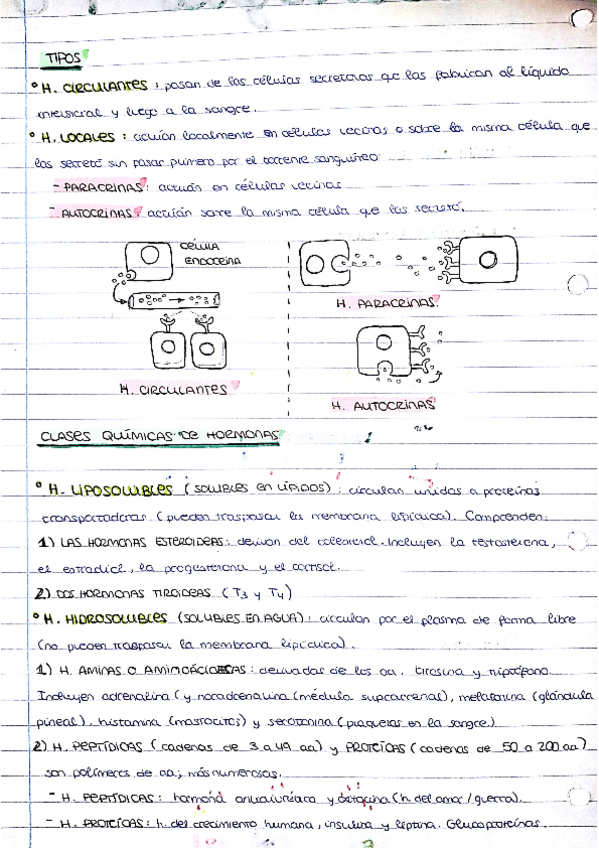 TIPOS
° H. CIRCULANTES : pasan de las células secretoras que las fabrican al líquido
intersticial y luego a la sangre.
° H. LOCALES : actúan localmente en células vecinas o sobre la misma célula que
las secretó sin pasar primero por el torrente sanguíneo
- PARACRINAS : actúan en células vecinas
- AUTOCRINAS : actúan sobre la misma célula que las secretó.
CÉLULA
ENDOCRINA
H. PARACRINAS
H. CIRCULANTES
H. AUTOCRINAS
CLASES QUÍMICAS DE HORMONAS
° H. LIPOSOLUBLES (SOLUBLES EN LÍPIDOS) : circulan unidas a proteínas
transportadoras (pueden traspasar la membrana lipídica). Comprenden:
1) LAS HORMONAS ESTEROIDEAS : derivan del colesterol. Incluyen la testosterona,
el estradiol, la progesterona y el cortisol.
2) DOS HORMONAS TIROIDEAS (T3 y T4)
° H. HIDROSOLUBLES (SOLUBLES EN AGUA) : circulan por el plasma de forma libre
(no pueden traspasar la membrana lipídica).
1) H. AMINAS O AMINOACÍDICAS : derivadas de los aa. tirosina y triptófano.
Incluyen adrenalina (y noradrenalina (médula suprarrenal), melatonina (glándula
pineal), histamina (mastocitos) y serotonina (plaquetas en la sangre)
2) H. PEPTÍDICAS (cadenas de 3 a 49 aa) y PROTEÍCAS (cadenas de 50 a 200 aa)
son polímeros de aa; más numerosas.
- H. PEPTÍDICAS : hormona antidiurética y oxitocina (h. del amor / guerra).
- H. PROTEÍCAS : h. del crecimiento humana, insulina y leptina. Glucoproteínas.